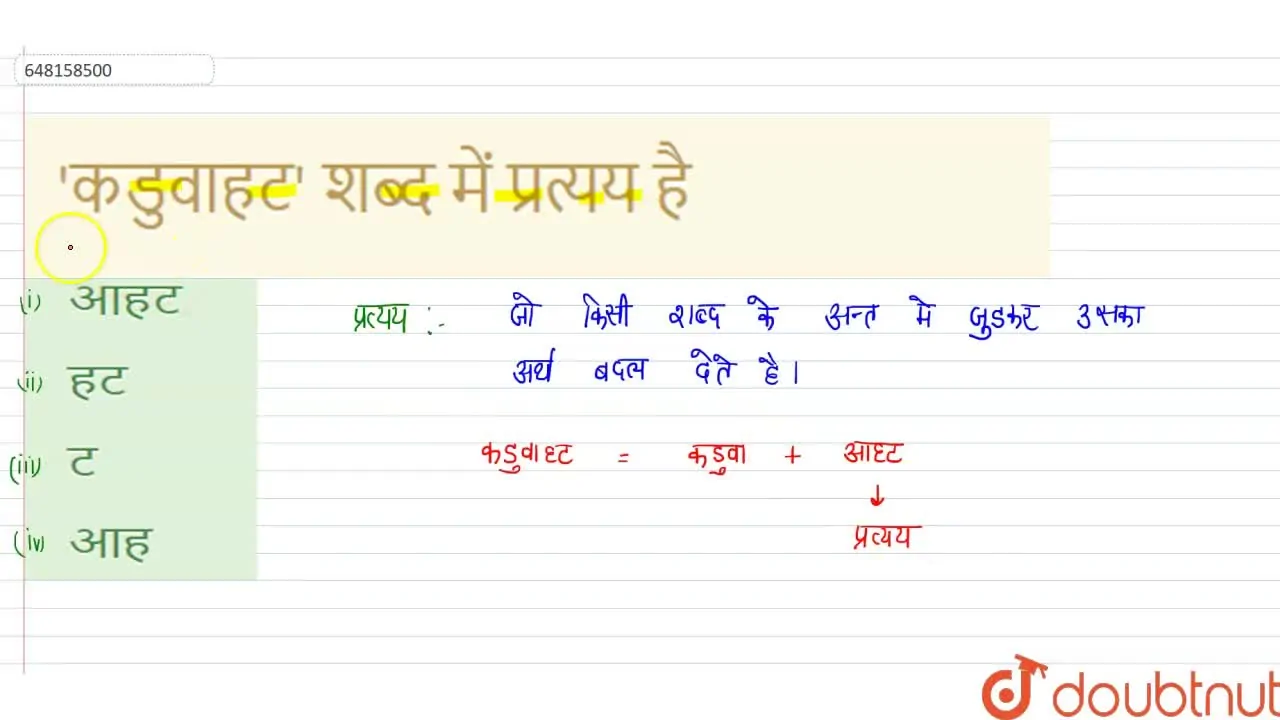 648158500
'कडुवाहट' शब्द में प्रत्यय है
(i) आहट
(ii) हट
(iii) ट
(iv) आह
प्रत्यय :- जो किसी शब्द के अन्त मे जुडकर उसका
अर्थ बदल देते है।
कडुवाहट = कडुवा + आहट
↓
प्रत्यय
doubtnut